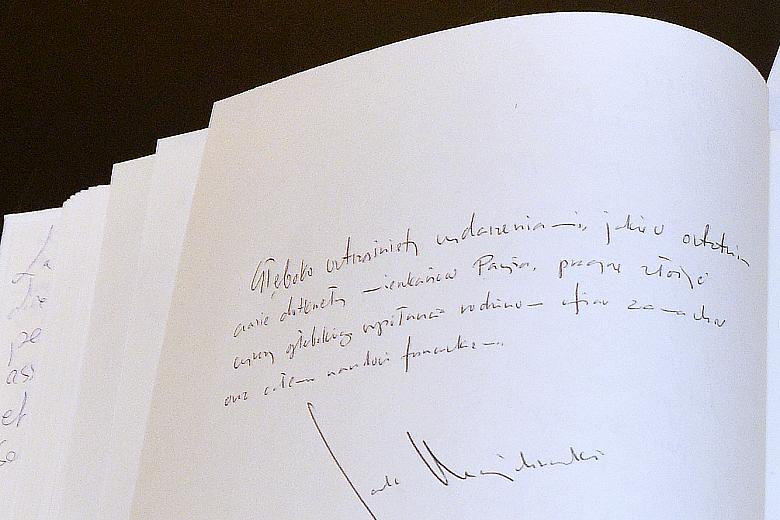 Głęboko wstrząśnięty wydarzeniami, jakie w ostatnim
czasie dotknęły mieszkańców Paryża, pragnę złożyć
wyrazy głębokiego współczucia rodzinom ofiar zamachów
oraz całemu narodowi francuskiemu.